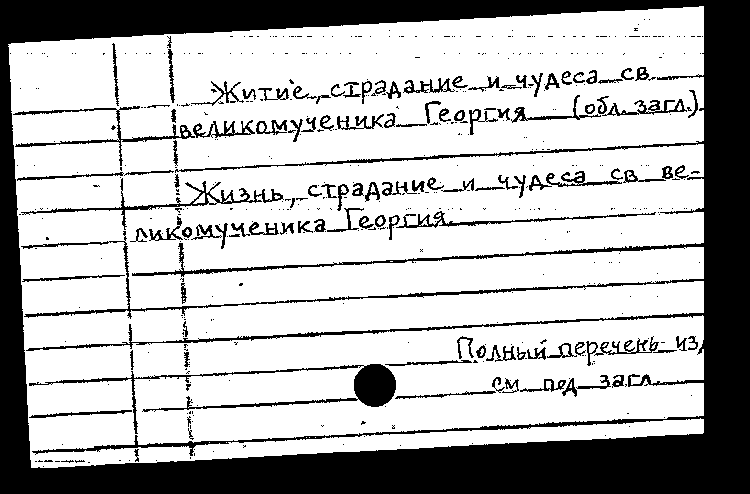 Житие, страдание и чудеса св
великомученика Георгия (обл. загл.)
Жизнь, страдание и чудеса св ве-
ликомученика Георгия.
Полный перечень изд
см под загл.